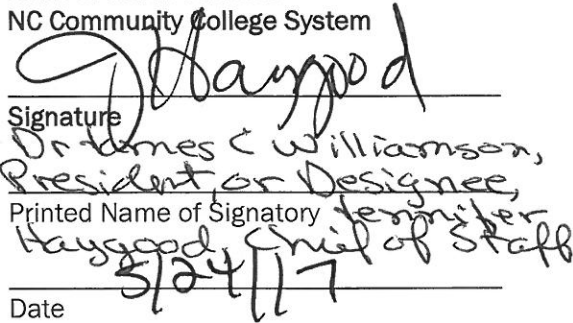 NC Community College System
J Haygood
Signature
Dr James C Williamson,
President, or Designee,
Printed Name of Signatory Jennifer
Haygood, Chief of Staff
5/24/17
Date